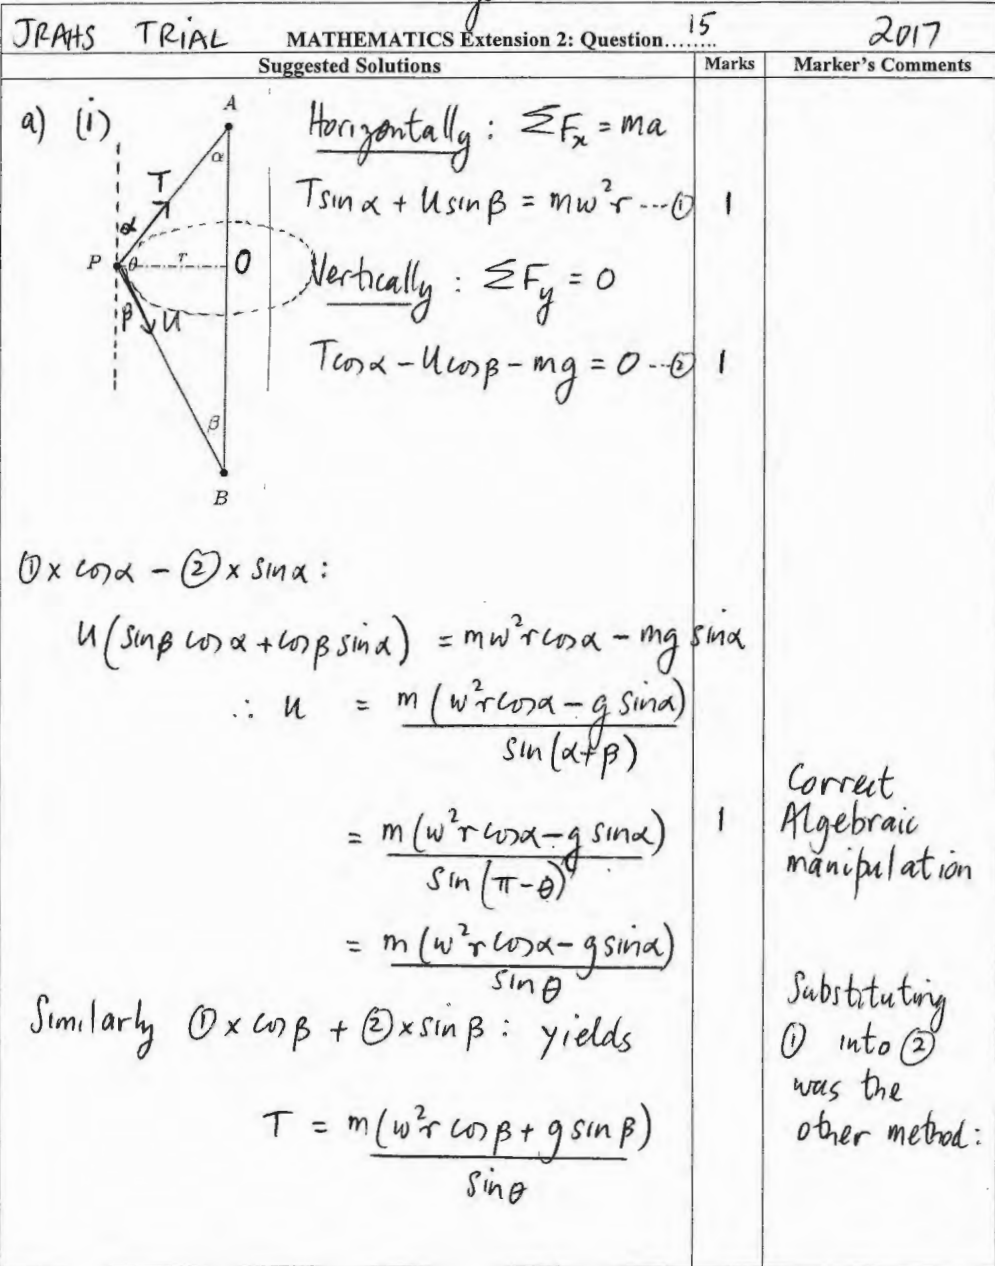 JRAHS TRIAL MATHEMATICS Extension 2: Question........15 2017
Suggested Solutions Marks Marker's Comments
a) (i)
A
α
T
α
P θ r O
β U
β
B
Horizontally : ΣFₓ = ma
T sin α + U sin β = mω²r ---① 1
Vertically : ΣF_y = 0
T cos α − U cos β − mg = 0 --② 1
① × cos α − ② × sin α :
U(sin β cos α + cos β sin α) = mω²r cos α − mg sin α
∴ U = m(ω²r cos α − g sin α) / sin(α+β)
= m(ω²r cos α − g sin α) / sin(π−θ) 1
Correct
Algebraic
manipulation
= m(ω²r cos α − g sin α) / sin θ
Similarly ① × cos β + ② × sin β : yields
T = m(ω²r cos β + g sin β) / sin θ
Substituting
① into ②
was the
other method: